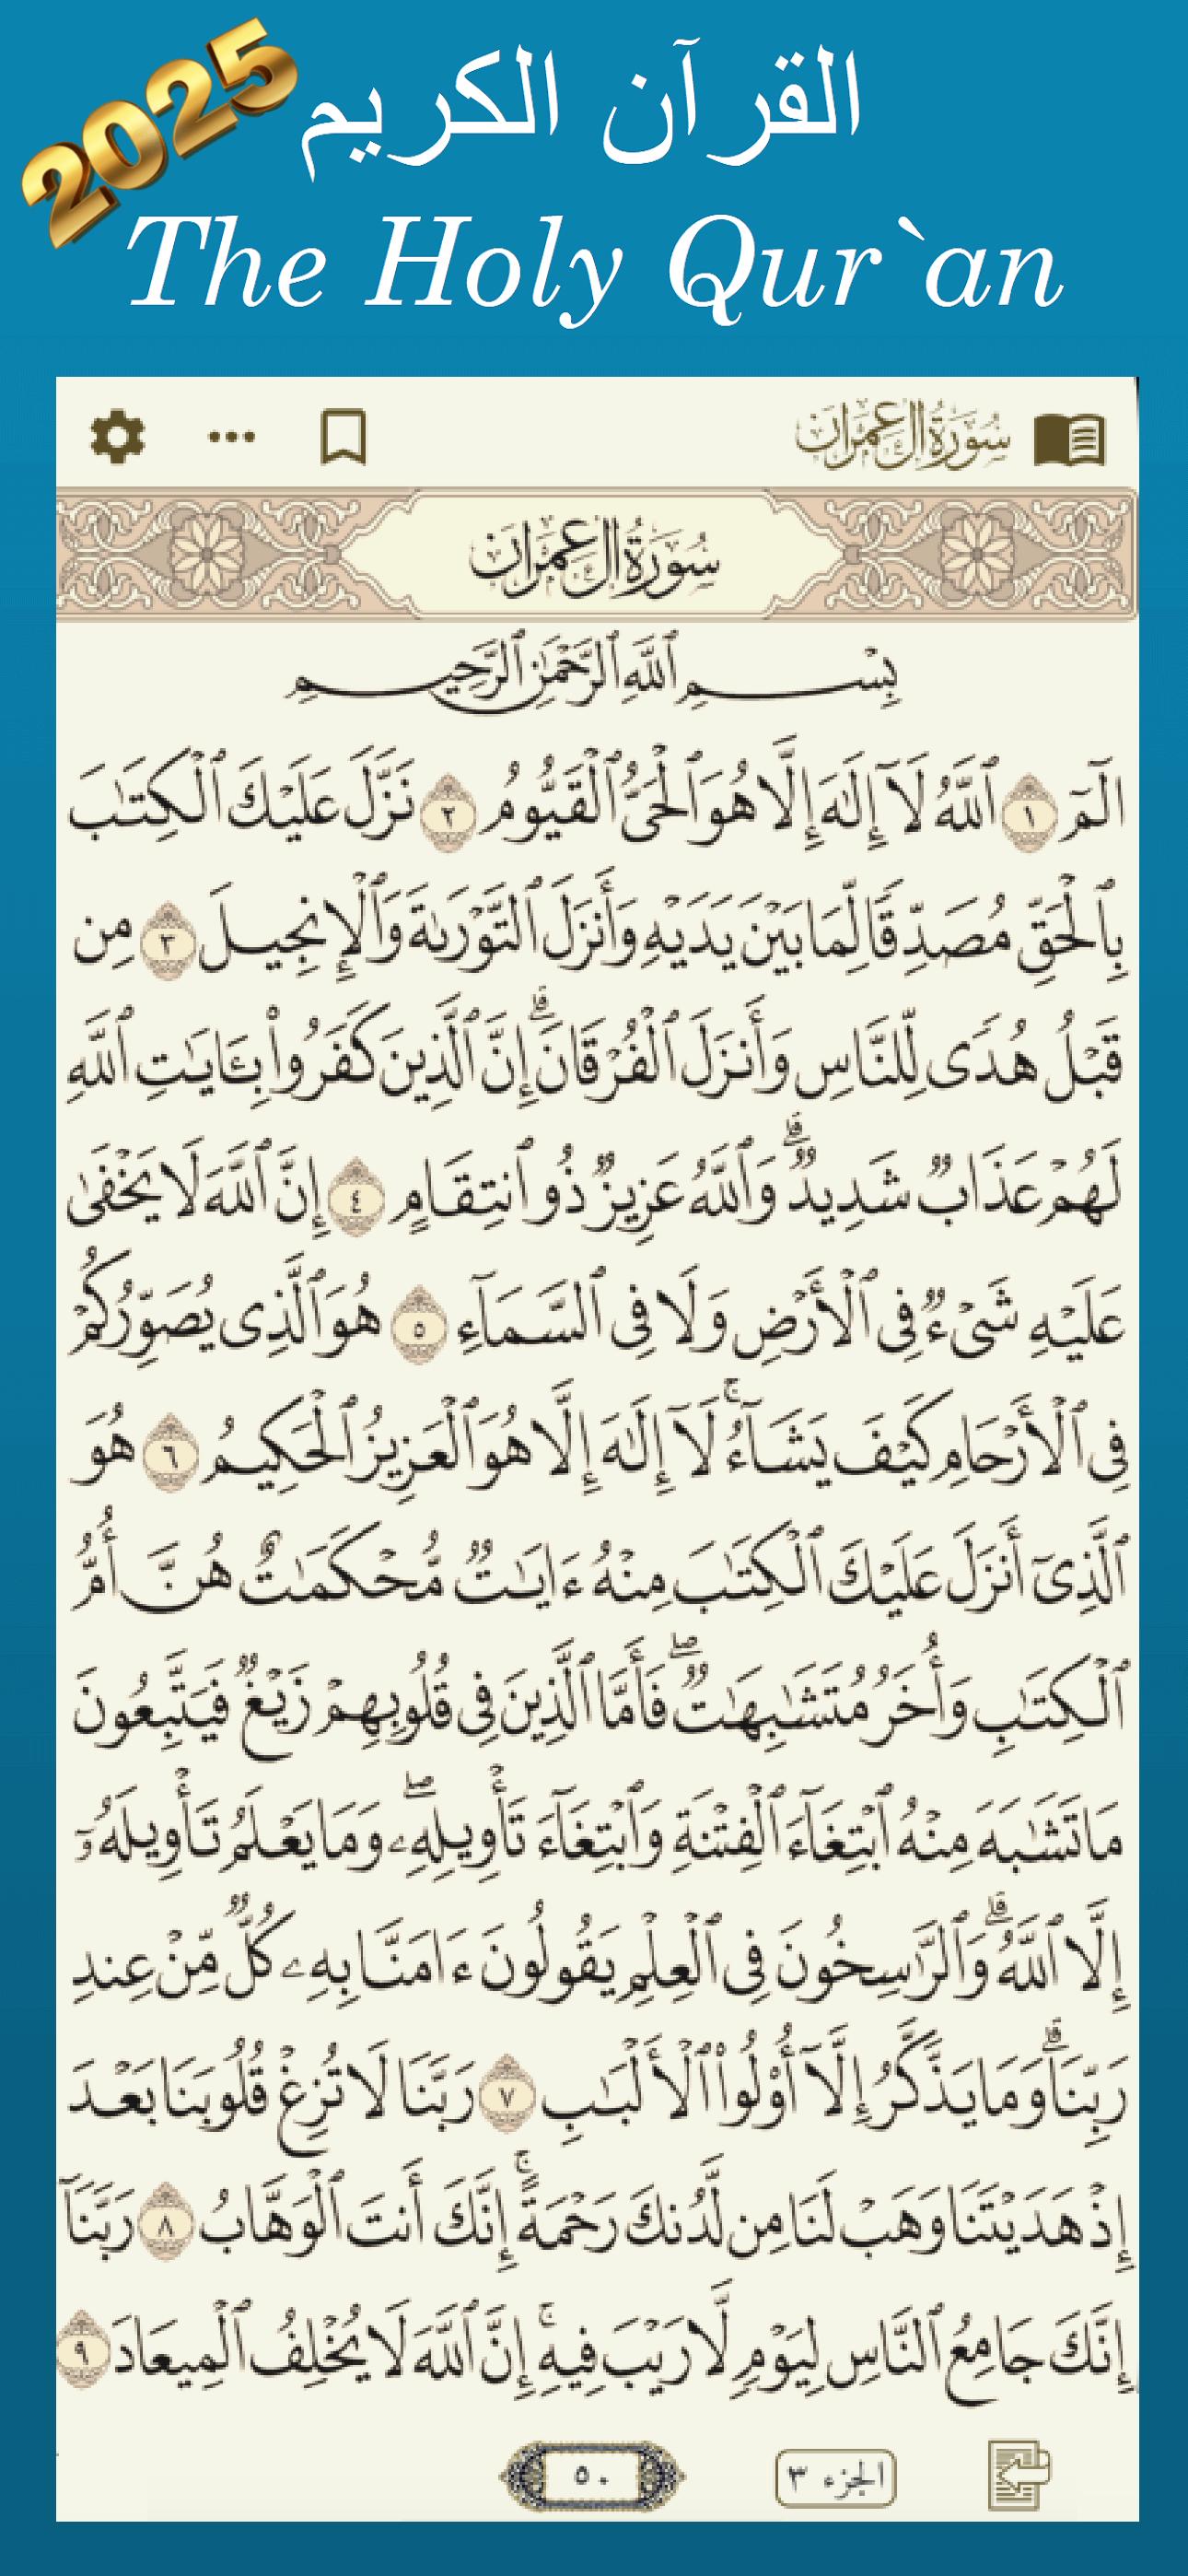 2025
القرآن الكريم
The Holy Qur`an
سُورَةُ آلِ عِمْرَان
سُورَةُ آلِ عِمْرَان
بِسْمِ ٱللَّهِ ٱلرَّحْمَٰنِ ٱلرَّحِيمِ
الٓمٓ ١ ٱللَّهُ لَآ إِلَٰهَ إِلَّا هُوَ ٱلْحَىُّ ٱلْقَيُّومُ ٢ نَزَّلَ عَلَيْكَ ٱلْكِتَٰبَ
بِٱلْحَقِّ مُصَدِّقًا لِّمَا بَيْنَ يَدَيْهِ وَأَنزَلَ ٱلتَّوْرَىٰةَ وَٱلْإِنجِيلَ ٣ مِن
قَبْلُ هُدًى لِّلنَّاسِ وَأَنزَلَ ٱلْفُرْقَانَ ۗ إِنَّ ٱلَّذِينَ كَفَرُوا۟ بِـَٔايَٰتِ ٱللَّهِ
لَهُمْ عَذَابٌ شَدِيدٌ ۗ وَٱللَّهُ عَزِيزٌ ذُو ٱنتِقَامٍ ٤ إِنَّ ٱللَّهَ لَا يَخْفَىٰ
عَلَيْهِ شَىْءٌ فِى ٱلْأَرْضِ وَلَا فِى ٱلسَّمَآءِ ٥ هُوَ ٱلَّذِى يُصَوِّرُكُمْ
فِى ٱلْأَرْحَامِ كَيْفَ يَشَآءُ ۚ لَآ إِلَٰهَ إِلَّا هُوَ ٱلْعَزِيزُ ٱلْحَكِيمُ ٦ هُوَ
ٱلَّذِىٓ أَنزَلَ عَلَيْكَ ٱلْكِتَٰبَ مِنْهُ ءَايَٰتٌ مُّحْكَمَٰتٌ هُنَّ أُمُّ
ٱلْكِتَٰبِ وَأُخَرُ مُتَشَٰبِهَٰتٌ ۖ فَأَمَّا ٱلَّذِينَ فِى قُلُوبِهِمْ زَيْغٌ فَيَتَّبِعُونَ
مَا تَشَٰبَهَ مِنْهُ ٱبْتِغَآءَ ٱلْفِتْنَةِ وَٱبْتِغَآءَ تَأْوِيلِهِۦ ۖ وَمَا يَعْلَمُ تَأْوِيلَهُۥٓ
إِلَّا ٱللَّهُ ۗ وَٱلرَّٰسِخُونَ فِى ٱلْعِلْمِ يَقُولُونَ ءَامَنَّا بِهِۦ كُلٌّ مِّنْ عِندِ
رَبِّنَا ۗ وَمَا يَذَّكَّرُ إِلَّآ أُو۟لُوا۟ ٱلْأَلْبَٰبِ ٧ رَبَّنَا لَا تُزِغْ قُلُوبَنَا بَعْدَ
إِذْ هَدَيْتَنَا وَهَبْ لَنَا مِن لَّدُنكَ رَحْمَةً ۚ إِنَّكَ أَنتَ ٱلْوَهَّابُ ٨ رَبَّنَآ
إِنَّكَ جَامِعُ ٱلنَّاسِ لِيَوْمٍ لَّا رَيْبَ فِيهِ ۚ إِنَّ ٱللَّهَ لَا يُخْلِفُ ٱلْمِيعَادَ ٩
الجزء ٣
٥٠